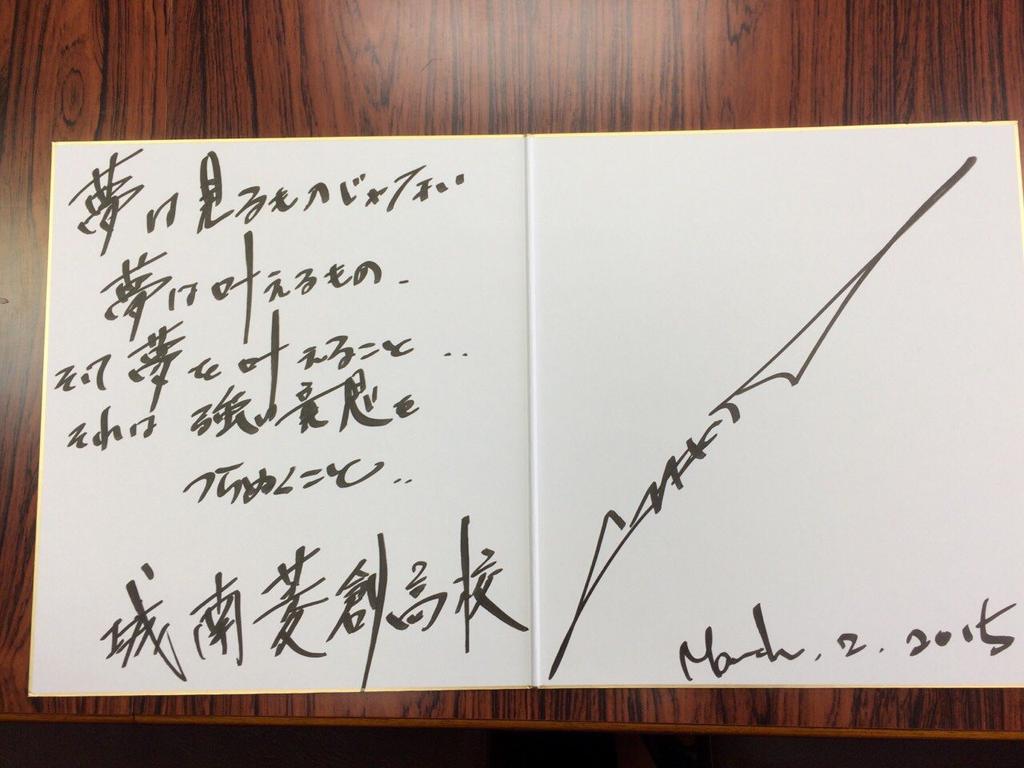 夢は見るものじゃない
夢は叶えるもの.
そして夢を叶えること..
それは強い意思を
つらぬくこと..
城南菱創高校
March. 2. 2015